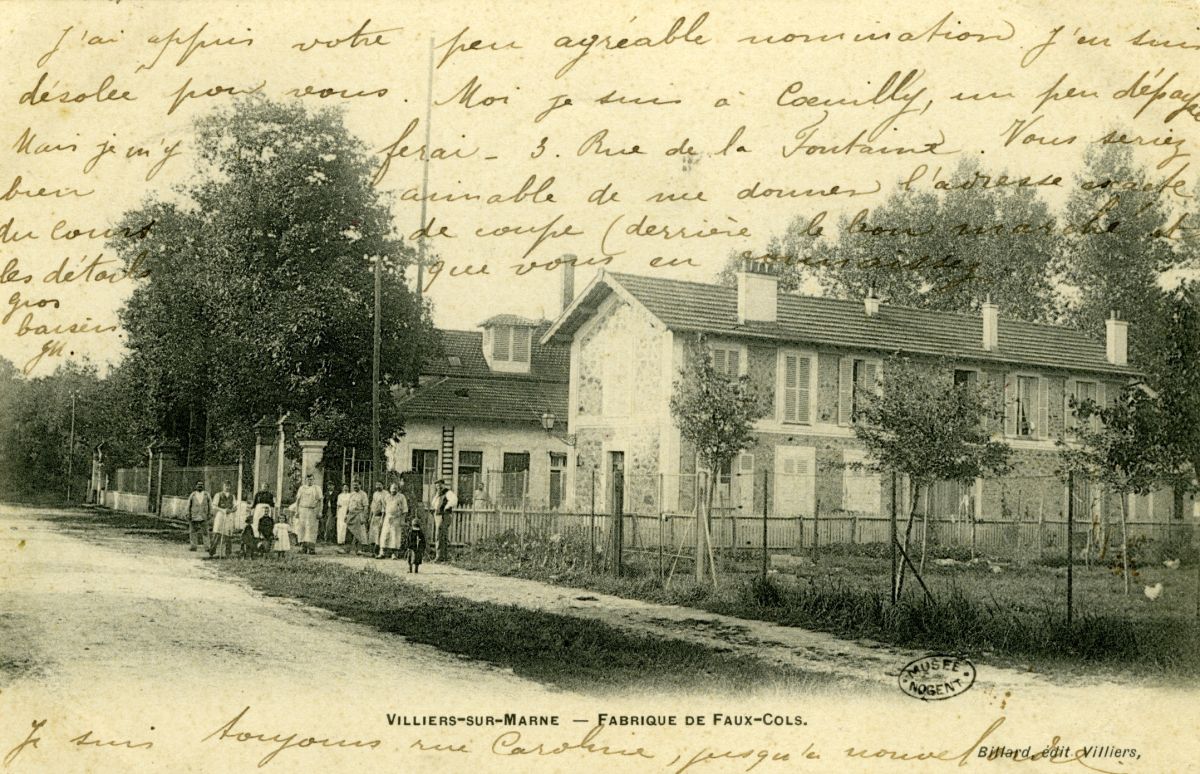 J'ai appris votre peu agréable nomination J'en suis
désolée pour vous. Moi je suis à Coeuilly, un peu dépaysée
Mais je m'y ferai - 3. Rue de la Fontaine. Vous seriez
bien aimable de me donner l'adresse exacte
du cours de coupe (derrière le bon marché et
les détails que vous en connaissez.
gros
baisers
VILLIERS-SUR-MARNE — FABRIQUE DE FAUX-COLS.
MUSÉE
NOGENT
Je suis toujours rue Caroline, jusqu'à nouvel ordre
Billard, édit. Villiers,